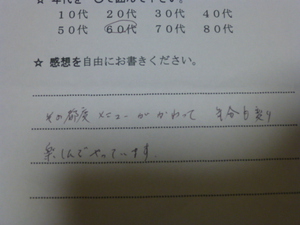 ☆ 年代を一つ○で囲んで下さい。
10代 20代 30代 40代
50代 60代 70代 80代
☆ 感想を自由にお書きください。
その都度メニューがかわって
でやっています。